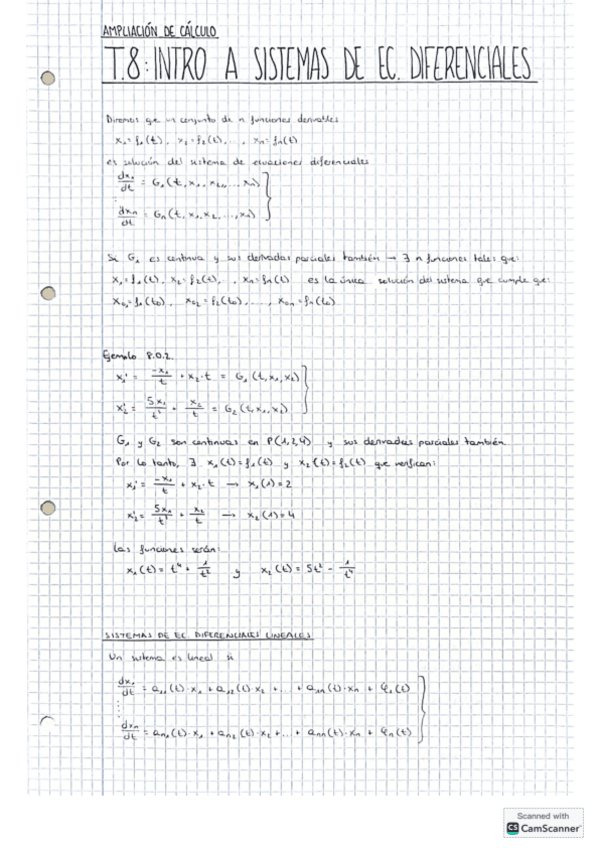 AMPLIACIÓN DE CÁLCULO
T.8: INTRO A SISTEMAS DE EC. DIFERENCIALES
Diremos que un conjunto de n funciones derivables
x₁=f₁(t), x₂=f₂(t),..., xn=fn(t)
es solución del sistema de ecuaciones diferenciales
dx₁/dt = G₁(t, x₁, x₂,..., xn)
⋮
dxn/dt = Gn(t, x₁, x₂,..., xn)
Si G₁ es continua y sus derivadas parciales también → ∃ n funciones tales que:
x₁=f₁(t), x₂=f₂(t), ., xn=fn(t) es la única solución del sistema que cumple que:
x₀₁=f₁(t₀), x₀₂=f₂(t₀),..., x₀n=fn(t₀)
Ejemplo P.0.2.
x₁' = -x₁/t + x₂·t = G₁(t, x₁, x₂)
x₂' = 5x₁/t³ + x₂/t = G₂(t, x₁, x₂)
G₁ y G₂ son continuas en P(1,2,4) y sus derivadas parciales también.
Por lo tanto, ∃ x₁(t)=f₁(t) y x₂(t)=f₂(t) que verifican:
x₁' = -x₁/t + x₂·t → x₁(1)=2
x₂' = 5x₁/t³ + x₂/t → x₂(1)=4
Las funciones serán:
x₁(t) = t⁴ + 1/t² y x₂(t) = 5t² - 1/t⁴
SISTEMAS DE EC. DIFERENCIALES LINEALES
Un sistema es lineal si
dx₁/dt = a₁₁(t)·x₁ + a₁₂(t)·x₂ + ... + a₁n(t)·xn + φ₁(t)
⋮
dxn/dt = an₁(t)·x₁ + an₂(t)·x₂ + ... + ann(t)·xn + φn(t)
Scanned with
CS CamScanner